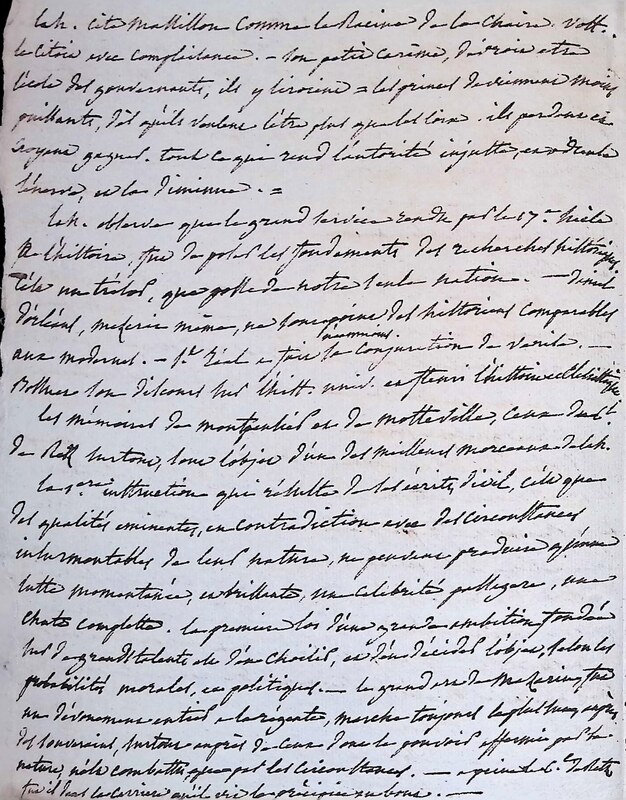 Lah. cite Massillon comme le Racine de la Chaire. Volt.
le citoit avec complaisance. - son petit carême, devroit etre
l'école des gouvernants, ils y liroient = les princes deviennent moins
puissants, dès qu'ils veulent l'être plus que les loix. ils perdent en
croyant gagner. tout ce qui rend l'autorité injuste, et odieuse
l'énerve, et la diminue. =
Lah. observe que le grand service rendu par le 17e siècle
à l'histoire, fut de poser les fondements des recherches historiques
c'est un trésor, que possède notre seule nation. - daniel
d'orléans, mezerai même, ne sont point des historiens comparables
aux modernes. - St. Réal a fait la conjuration de Venise. -
Bossuet son discours sur l'hist. univ. et fleuri l'histoire ecclésiastique
les mémoires de montpensier et de motteville, ceux du cl.
de Retz surtout, sont l'objet d'un des meilleurs morceaux de Lah.
la 1ere instruction qui résulte de ses écrits, dit-il, c'est que
des qualités eminentes, en contradiction avec des circonstances
insurmontables de leur nature, ne peuvent produire qu'une
lutte momentanée, et brillante, une célébrité passagere, une
chute complette. la premiere loi d'une grande ambition fondée
sur de grands talents est d'en choisir, et d'en décider l'objet, selon les
probabilités morales, et politiques. - le grand art de Mazarin, fut
un dévouement entier a la régente, marche toujours la plus sure auprès
des souverains, surtout auprès de ceux dont le pouvoir affermi par sa
nature, n'est combattu que par les circonstances. - a peine le C. de Retz
fut il dans la carriere qu'il vit le précipice au bout. -